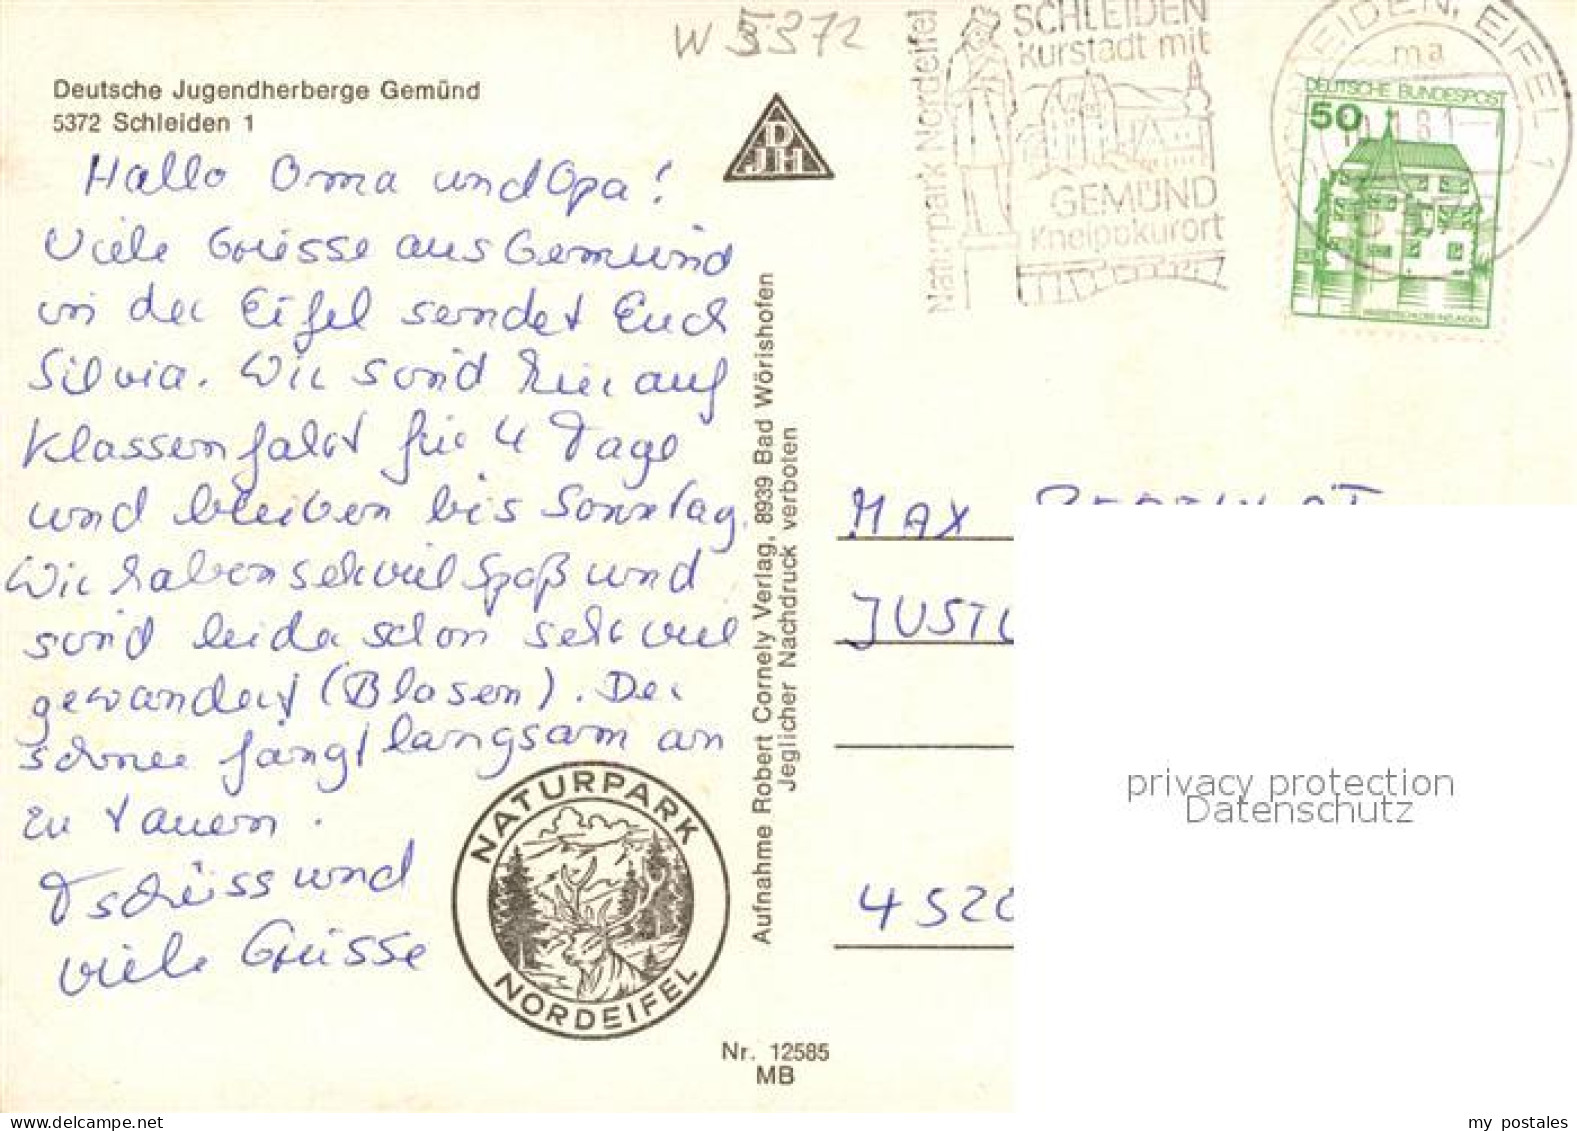 W 5372
Deutsche Jugendherberge Gemünd
5372 Schleiden 1
DJH
Hallo Oma und Opa!
Viele Grüsse aus Gemünd
in der Eifel sendet Euch
Silvia. Wir sind hier auf
Klassenfahrt für 4 Tage
und bleiben bis Sonntag.
Wir haben sehr viel Spaß und
sind leider schon sehr viel
gewandert (Blasen). Der
schnee fängt langsam an
zu tauern.
Tschüss und
viele Grüsse
NATURPARK
NORDEIFEL
Nr. 12585
MB
Aufnahme Robert Cornely Verlag, 8939 Bad Wörishofen
Jeglicher Nachdruck verboten
Naturpark Nordeifel
SCHLEIDEN
Kurstadt mit
GEMÜND
Kneippkurort
EIDEN, EIFEL 1
ma
DEUTSCHE BUNDESPOST
50
WASSERSCHLOSS INZLINGEN
MAX
JUST
452
privacy protection
Datenschutz
my postales